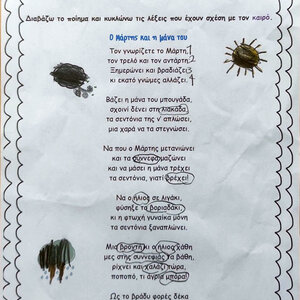 Διαβάζω το ποίημα και κυκλώνω τις λέξεις που έχουν σχέση με τον καιρό.
Ο Μάρτης και η μάνα του
Τον γνωρίζετε το Μάρτη, 1
τον τρελό και τον αντάρτη; 2
Ξημερώνει και βραδιάζει 3
κι εκατό γνώμες αλλάζει. 4
Βάζει η μάνα του μπουγάδα,
σχοινί δένει στη λιακάδα,
τα σεντόνια της ν' απλώσει,
μια χαρά να τα στεγνώσει.
Να που ο Μάρτης μετανιώνει
και τα σύννεφα μαζώνει
και να μάσει η μάνα τρέχει
τα σεντόνια, γιατί βρέχει!
Να ο ήλιος σε λιγάκι,
φύσηξε το βοριαδάκι
κι η φτωχή γυναίκα μόνη
τα σεντόνια ξαναπλώνει.
Μια βροντή κι ο ήλιος χάθη
μες στης συννεφιάς τα βάθη,
ρίχνει και χαλάζι τώρα,
ποποπό, τι άγρια μπόρα!
Ως το βράδυ φορές δέκα